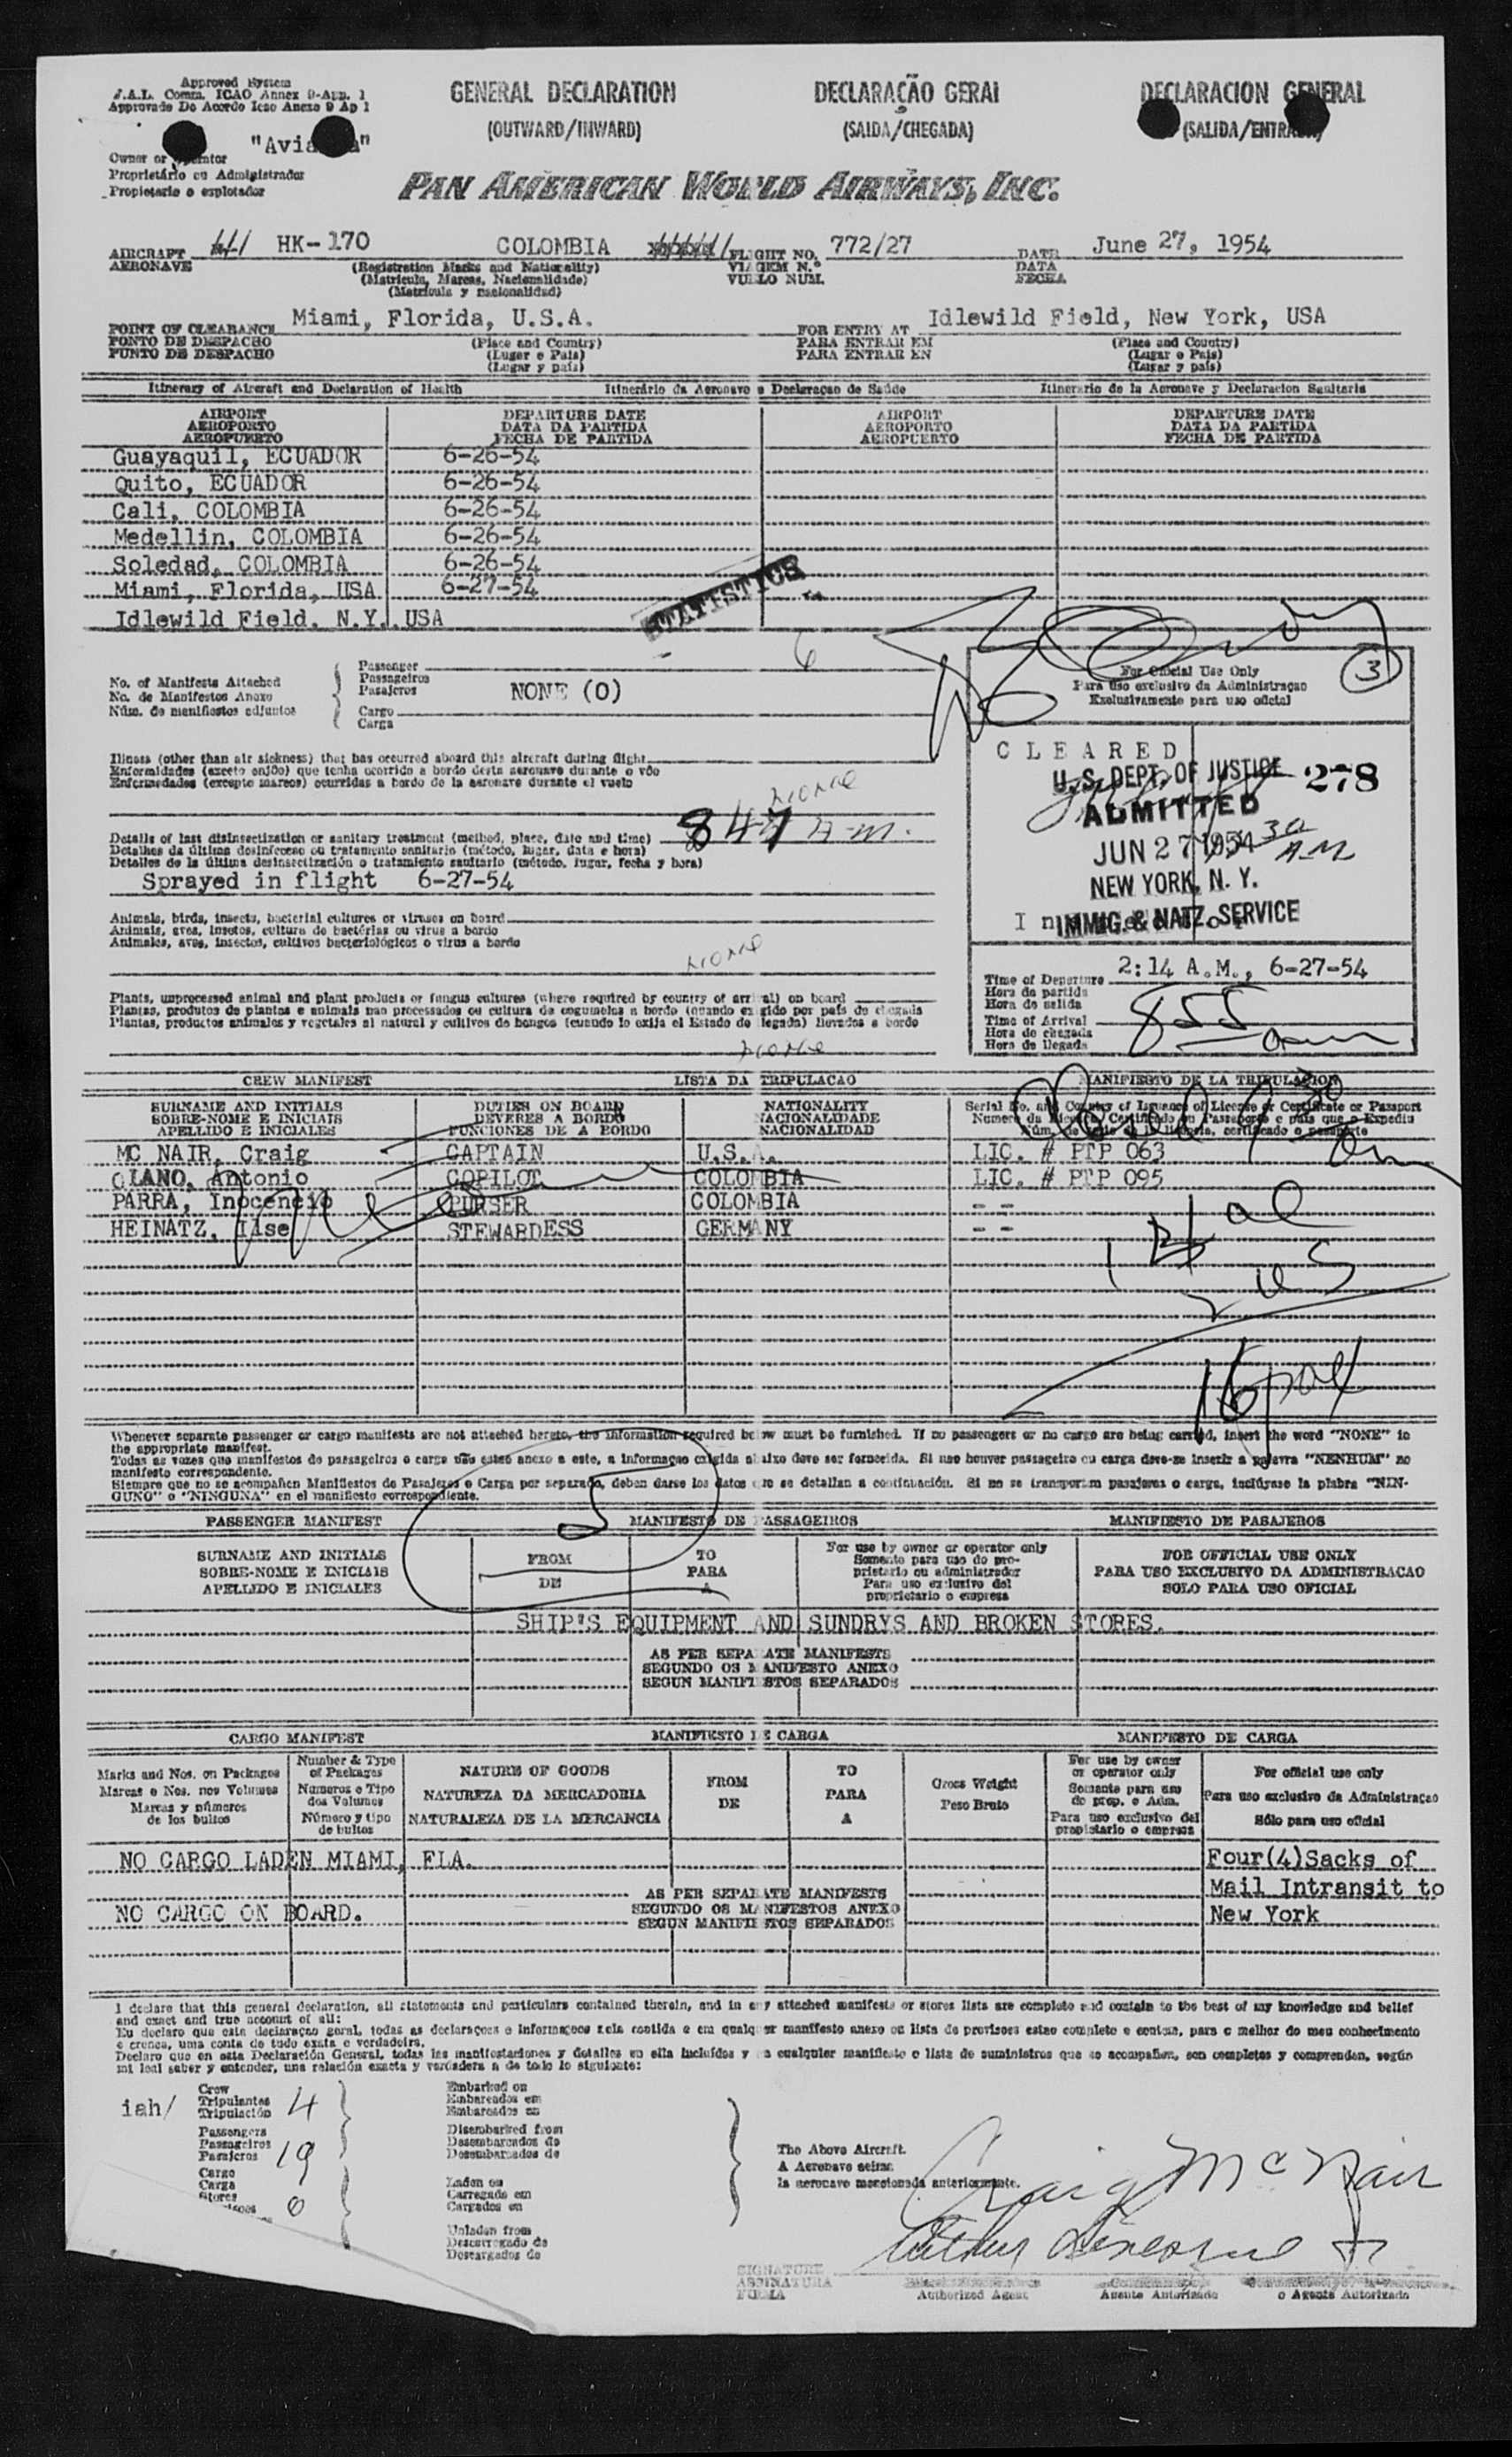 Approved System
J.A.L. Comm. ICAO Annex 9-App. 1
Approvado De Acordo Icao Anexo 9 Ap 1
GENERAL DECLARATION
(OUTWARD/INWARD)
DECLARAÇÃO GERAL
(SAIDA/CHEGADA)
DECLARACION GENERAL
(SALIDA/ENTRADA)
Owner or Operator
Proprietário ou Administrador
Propietario o explotador
PAN AMERICAN WORLD AIRWAYS, INC.
AIRCRAFT HK-170 COLOMBIA FLIGHT NO. 772/27 DATE June 27, 1954
AERONAVE (Registration Marks and Nationality) VIAGEM N.° DATA
(Matricula, Marcas, Nacionalidade) VUELO NUM. FECHA
(Matricula y nacionalidad)
POINT OF CLEARANCE Miami, Florida, U.S.A. FOR ENTRY AT Idlewild Field, New York, USA
PONTO DE DESPACHO (Place and Country) PARA ENTRAR EM (Place and Country)
PUNTO DE DESPACHO (Lugar e Pais) PARA ENTRAR EN (Lugar e Pais)
(Lugar y país) (Lugar y país)
Itinerary of Aircraft and Declaration of Health Itinerário da Aeronave e Declaraçao de Saúde Itinerario de la Aeronave y Declaracion Sanitaria
AIRPORT DEPARTURE DATE AIRPORT DEPARTURE DATE
AEROPORTO DATA DA PARTIDA AEROPORTO DATA DA PARTIDA
AEROPUERTO FECHA DE PARTIDA AEROPUERTO FECHA DE PARTIDA
Guayaquil, ECUADOR 6-26-54
Quito, ECUADOR 6-26-54
Cali, COLOMBIA 6-26-54
Medellin, COLOMBIA 6-26-54
Soledad, COLOMBIA 6-26-54
Miami, Florida, USA 6-27-54
Idlewild Field. N.Y. USA
STATISTICS
6
No. of Manifests Attached
No. de Manifestos Anexo
Núm. de manifiestos adjuntos
Passenger
Passageiros
Pasajeros
NONE (0)
Cargo
Carga
For Official Use Only
Para uso exclusivo da Administraçao
Exclusivamente para uso oficial
3
Illness (other than air sickness) that has occurred aboard this aircraft during flight
Enformidades (exceto enjôo) que tenha ocorrido a bordo desta aeronave durante o vôo
Enfermedades (excepto mareos) ocurridas a bordo de la aeronave durante el vuelo
None
CLEARED
U.S. DEPT. OF JUSTICE 278
ADMITTED
JUN 27 1954
30 AM
NEW YORK, N. Y.
IMMIG. & NATZ. SERVICE
Details of last disinsectization or sanitary treatment (method, place, date and time) 847 A.m.
Detalhes da última desinfeceao ou tratamento sanitario (método, lugar, data e hora)
Detalles de la última desinsectización o tratamiento sanitario (método, lugar, fecha y hora)
Sprayed in flight 6-27-54
Animals, birds, insects, bacterial cultures or viruses on board
Animais, aves, insetos, cultura de bactérias ou virus a bordo
Animales, aves, insectos, cultivos bacteriológicos o virus a bordo
None
Plants, unprocessed animal and plant products or fungus cultures (where required by country of arrival) on board
Plantas, produtos de plantas e animais nao processados ou cultura de cogumelos a bordo (quando exigido por país de chegada
Plantas, productos animales y vegetales al natural y cultivos de hongos (cuando lo exija el Estado de llegada) llevados a bordo
None
Time of Departure 2:14 A.M., 6-27-54
Hora de partida
Hora de salida
Time of Arrival 855 am
Hora de chegada
Hora de llegada
CREW MANIFEST LISTA DA TRIPULACAO MANIFIESTO DE LA TRIPULACION
SURNAME AND INITIALS DUTIES ON BOARD NATIONALITY Serial No. and Country of Issuance of License or Certificate or Passport
SOBRE-NOME E INICIAIS DEVERES A BORDO NACIONALIDADE
APELLIDO E INICIALES FUNCIONES DE A BORDO NACIONALIDAD
MC NAIR, Craig CAPTAIN U.S.A. LIC. # PTP 063
OLANO, Antonio COPILOT COLOMBIA LIC. # PTP 095
PARRA, Inocencio PURSER COLOMBIA - -
HEINATZ, Ilse STEWARDESS GERMANY - -
Whenever separate passenger or cargo manifests are not attached hereto, the information required below must be furnished. If no passengers or no cargo are being carried, insert the word "NONE" in
the appropriate manifest.
Todas as vezes que manifestos de passageiros e carga não estao anexo a este, a informaçao exigida abaixo deve ser fornecida. Si nao houver passageiro ou carga deve-se inserir a palavra "NENHUM" no
manifesto correspondente.
Siempre que no se acompañen Manifiestos de Pasajeros o Carga por separado, deben darse los datos que se detallan a continuación. Si no se transportan pasajeros o carga, inclúyase la plabra "NIN-
GUNO" o "NINGUNA" en el manifiesto correspondiente.
5
PASSENGER MANIFEST MANIFESTO DE PASSAGEIROS MANIFIESTO DE PASAJEROS
SURNAME AND INITIALS FROM TO For use by owner or operator only FOR OFFICIAL USE ONLY
SOBRE-NOME E INICIAIS DE PARA Somente para uso do pro- PARA USO EXCLUSIVO DA ADMINISTRACAO
APELLIDO E INICIALES A prietario ou administrador SOLO PARA USO OFICIAL
Para uso exclusivo del
proprietario o empresa
SHIP'S EQUIPMENT AND SUNDRYS AND BROKEN STORES.
AS PER SEPARATE MANIFESTS
SEGUNDO OS MANIFESTO ANEXO
SEGUN MANIFIESTOS SEPARADOS
CARGO MANIFEST MANIFIESTO DE CARGA MANIFESTO DE CARGA
Marks and Nos. on Packages
Marcas e Nos. nos Volumes
Marcas y números
de los bultos
Number & Type
of Packages
Numeros e Tipo
dos Volumes
Número y tipo
de bultos
NATURE OF GOODS
NATUREZA DA MERCADORIA
NATURALEZA DE LA MERCANCIA
FROM
DE
TO
PARA
A
Gross Weight
Peso Bruto
For use by owner
or operator only
Somente para uso
do prop. e Adm.
Para uso exclusivo del
propietario o empresa
For official use only
Para uso exclusivo da Administraçao
Sólo para uso oficial
NO CARGO LADEN MIAMI, FLA. Four(4)Sacks of
AS PER SEPARATE MANIFESTS Mail Intransit to
NO CARGO ON BOARD. SEGUNDO OS MANIFESTOS ANEXO New York
SEGUN MANIFIESTOS SEPARADOS
I declare that this general declaration, all statements and particulars contained therein, and in any attached manifests or stores lists are complete and contain to the best of my knowledge and belief
and exact and true account of all:
Eu declaro que esta declaraçao geral, todas as declaraçoes e informaçoes nela contida e em qualquer manifesto anexo ou lista de provisoes estao completo e contem, para o melhor do meu conhecimento
e crenca, uma conta de tudo exata e verdadeira.
Declaro que en esta Declaración General, todas las manifestaciones y detalles en ella incluídos y en cualquier manifiesto o lista de suministros que se acompañen, son completas y comprenden, según
mi leal saber y entender, una relación exacta y verdadera a de todo lo siguiente:
iah/
Crew
Tripulantes 4
Tripulación
Passengers
Passageiros 19
Pasajeros
Cargo
Carga
Stores 0
Embarked on
Embarcados em
Embarcados en
Disembarked from
Desembarcados de
Desembarcados de
Laden on
Carregado em
Cargados en
Unladen from
Descarregado de
Descargados de
The Above Aircraft.
la aeronave mencionada anteriormente.
Craig McNair
SIGNATURE
ASSINATURA
FIRMA
Authorized Agent Agente Autorizado o Agente Autorizado